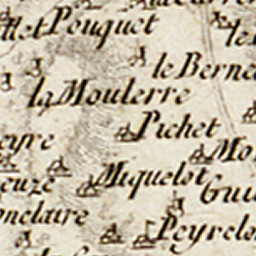 Pouquet
le Berne
la Moulerre
Pichet
eyre
Mo
Miquelot
euze
Gui
onclaire
Peyrelo